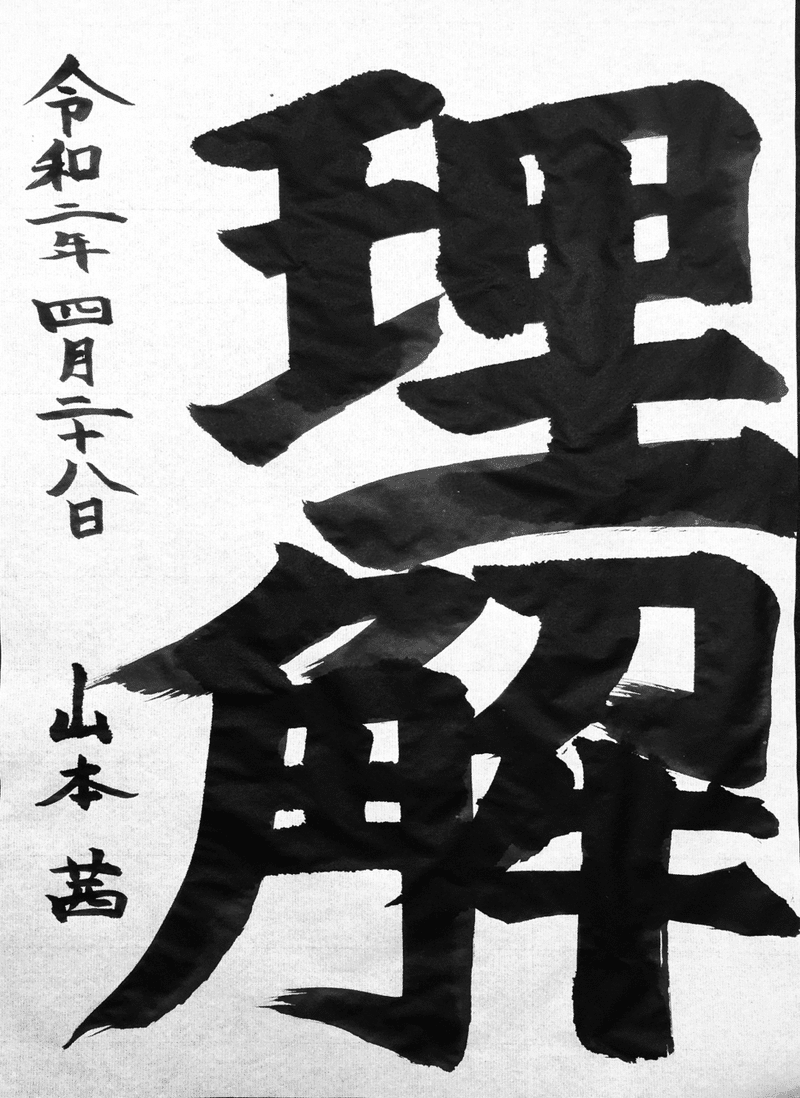 理解
令和二年四月二十八日
山本茜